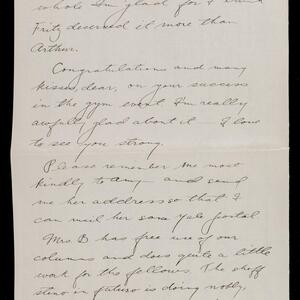 whole I'm glad for I think
Fritz deserved it more than
Arthur.
Congratulations and many
kisses, dear, on your success
in the gym event. I'm really
awfully glad about it – I love
to see you strong.
Please remember me most
kindly to Amy – and send
me her address so that I
can mail her some Yale postal
Mrs. B has free use of our
columns and does quite a little
work for the fellows. The sheff
steno in futuro is doing nobly,